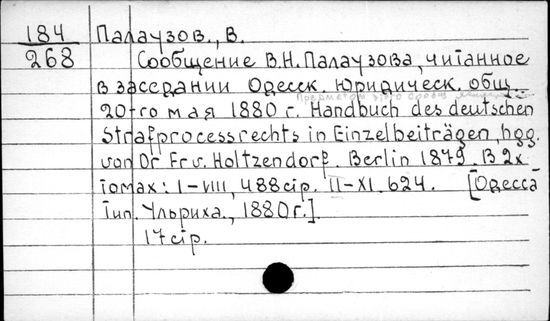 184
268
Палаузов., В.
Сообщение В.Н. Палаузова, читанное
в засєдании Одесск. Юридическ. общ..
20-го мая 1880 г. Handbuch des deutschen
Strafprocessrechts in Einzelbeiträgen, hgg.
von Dr Fr v. Holtzendorf. Berlin 1879. В 2х
томах: I-VIII, 488 стр. II-XI. 624. [Одесса
Тип. Ульриха., 1880 г.]
17 стр.